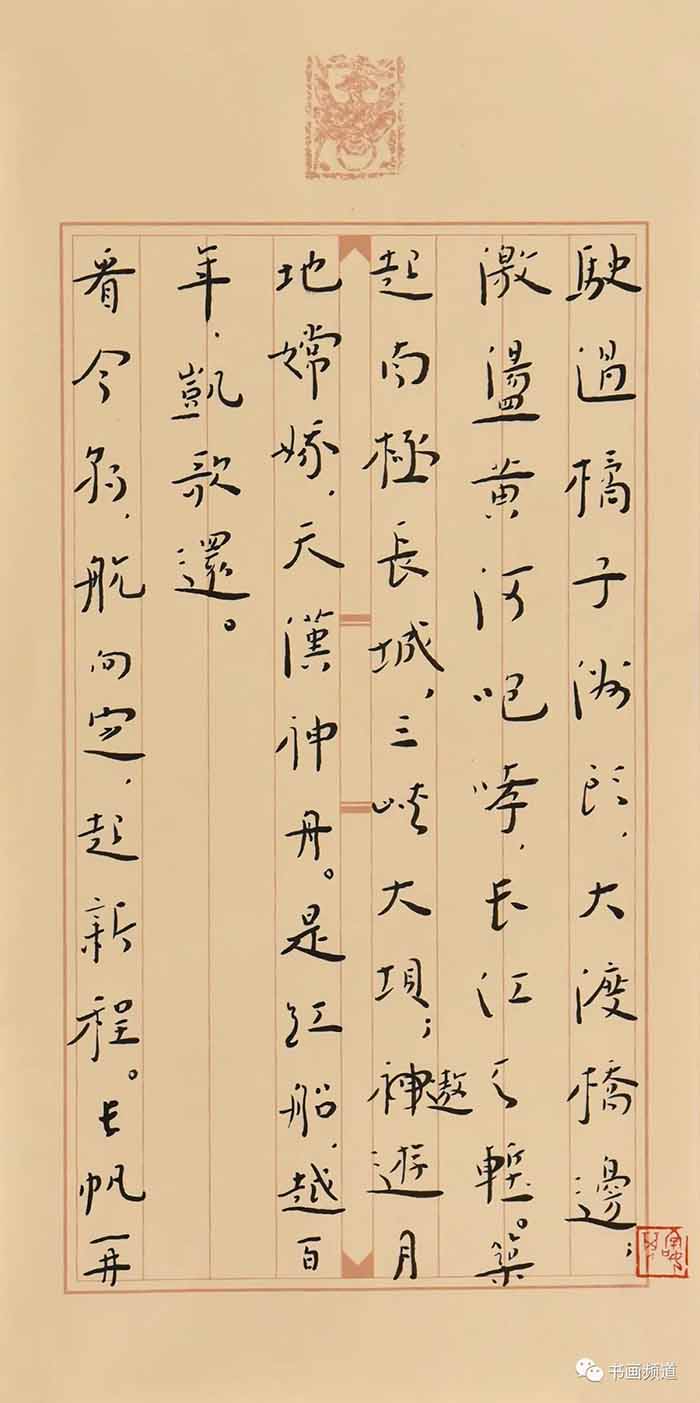 駛過橘子洲頭，大渡橋邊；
激盪黄河咆哮，長江天塹。築
起南極長城，三峡大垻；神遨遊月
地嫦娥，天漢神舟。是红船，越百
年，凱歌還。
看今朝，航向定，起新程。長帆再
书画频道